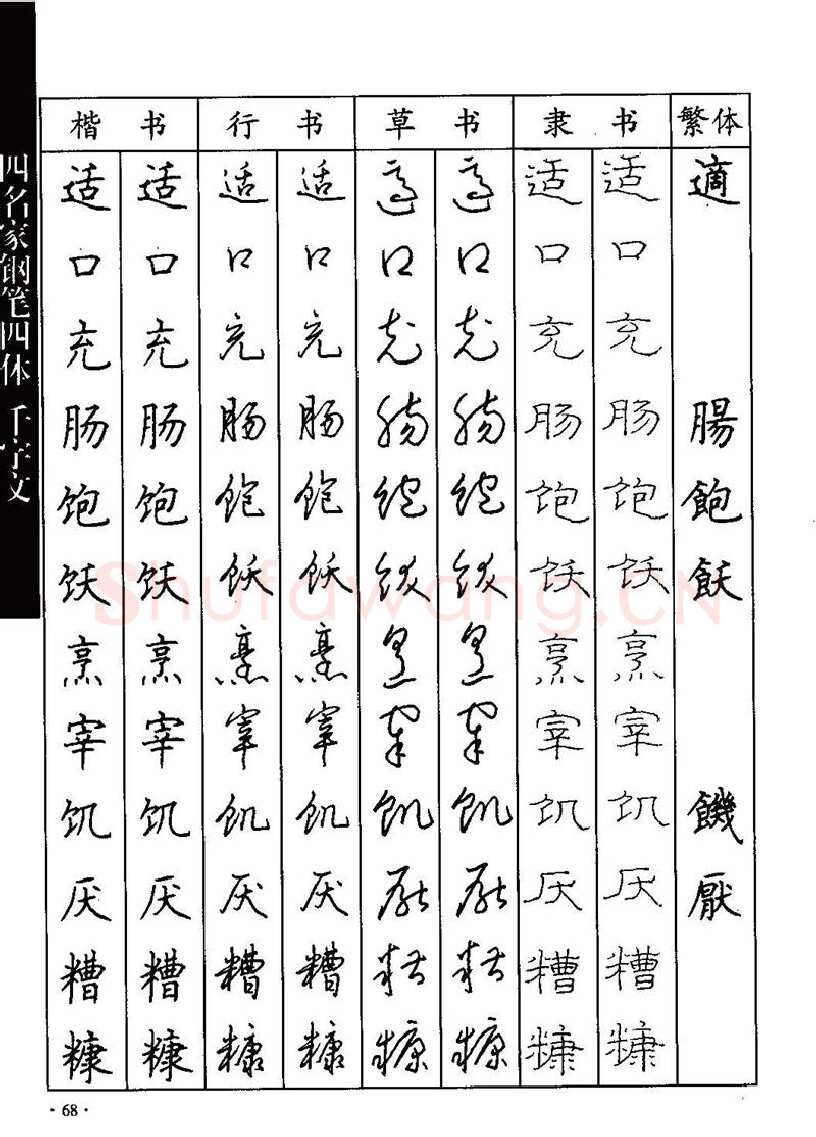 四名家钢笔四体 千字文
楷书 行书 草书 隶书 繁体
适 适 适 适 适 适 适 适 適
口 口 口 口 口 口 口 口
充 充 充 充 充 充 充 充
肠 肠 肠 肠 肠 肠 肠 肠 腸
饱 饱 饱 饱 饱 饱 饱 饱 飽
饫 饫 饫 饫 饫 饫 饫 饫 飫
烹 烹 烹 烹 烹 烹 烹 烹
宰 宰 宰 宰 宰 宰 宰 宰
饥 饥 饥 饥 饥 饥 饥 饥 饑
厌 厌 厌 厌 厌 厌 厌 厌 厭
糟 糟 糟 糟 糟 糟 糟 糟
糠 糠 糠 糠 糠 糠 糠 糠
Shufawang.CN
·68·